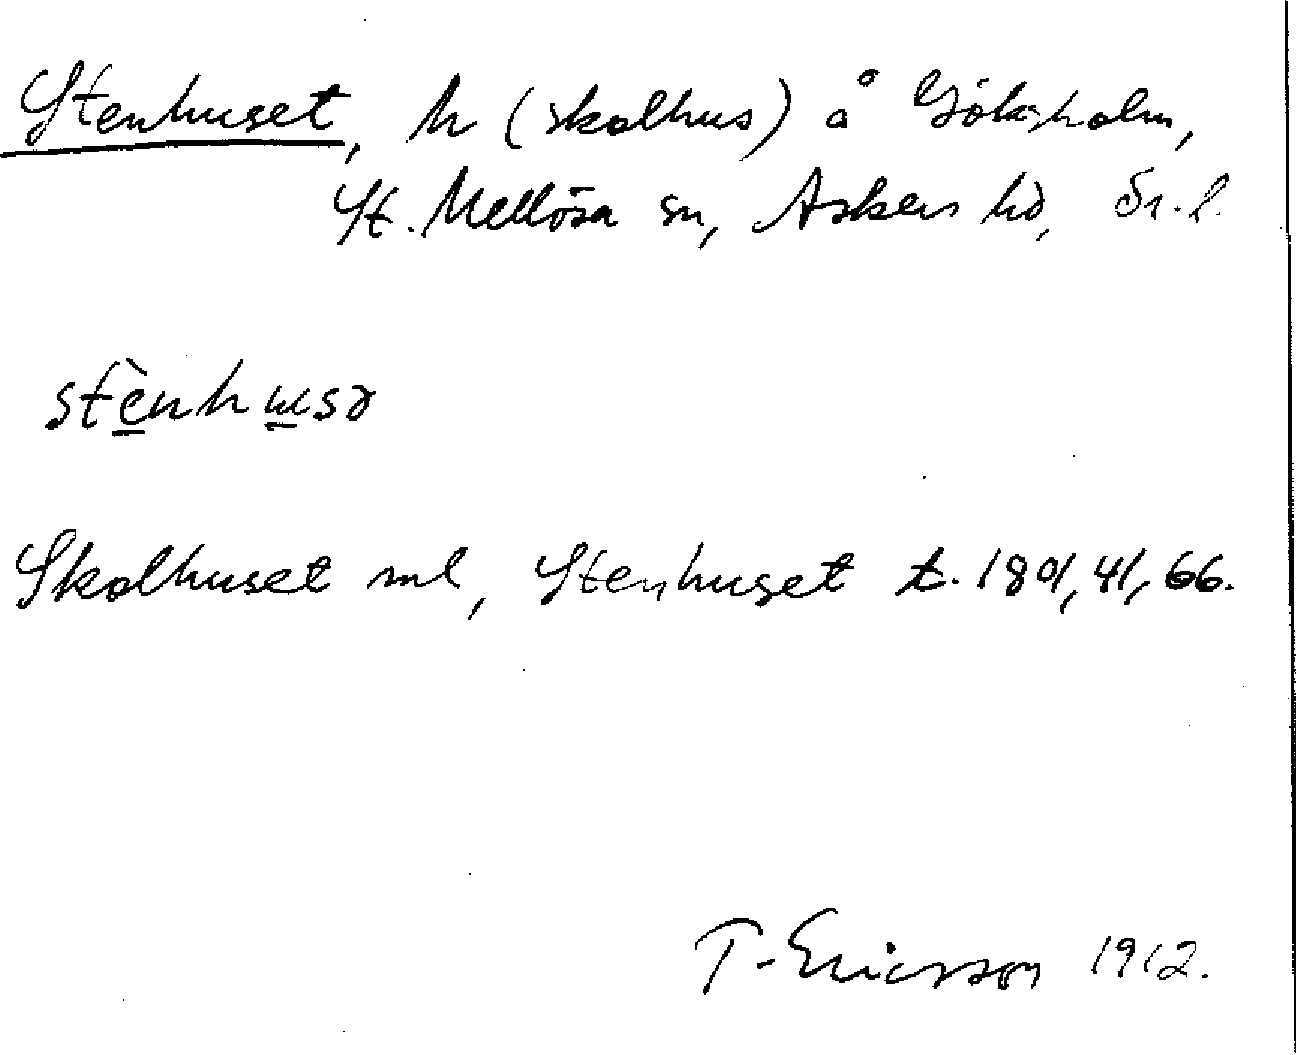 Stenhuset, h (skolhus) å Göksholm,
St. Mellösa sn, Askers hd, Ör. l.
stènhusə
Skolhuset ml, Stenhuset t. 1801, 41, 66.
T. Ericsson 1912.